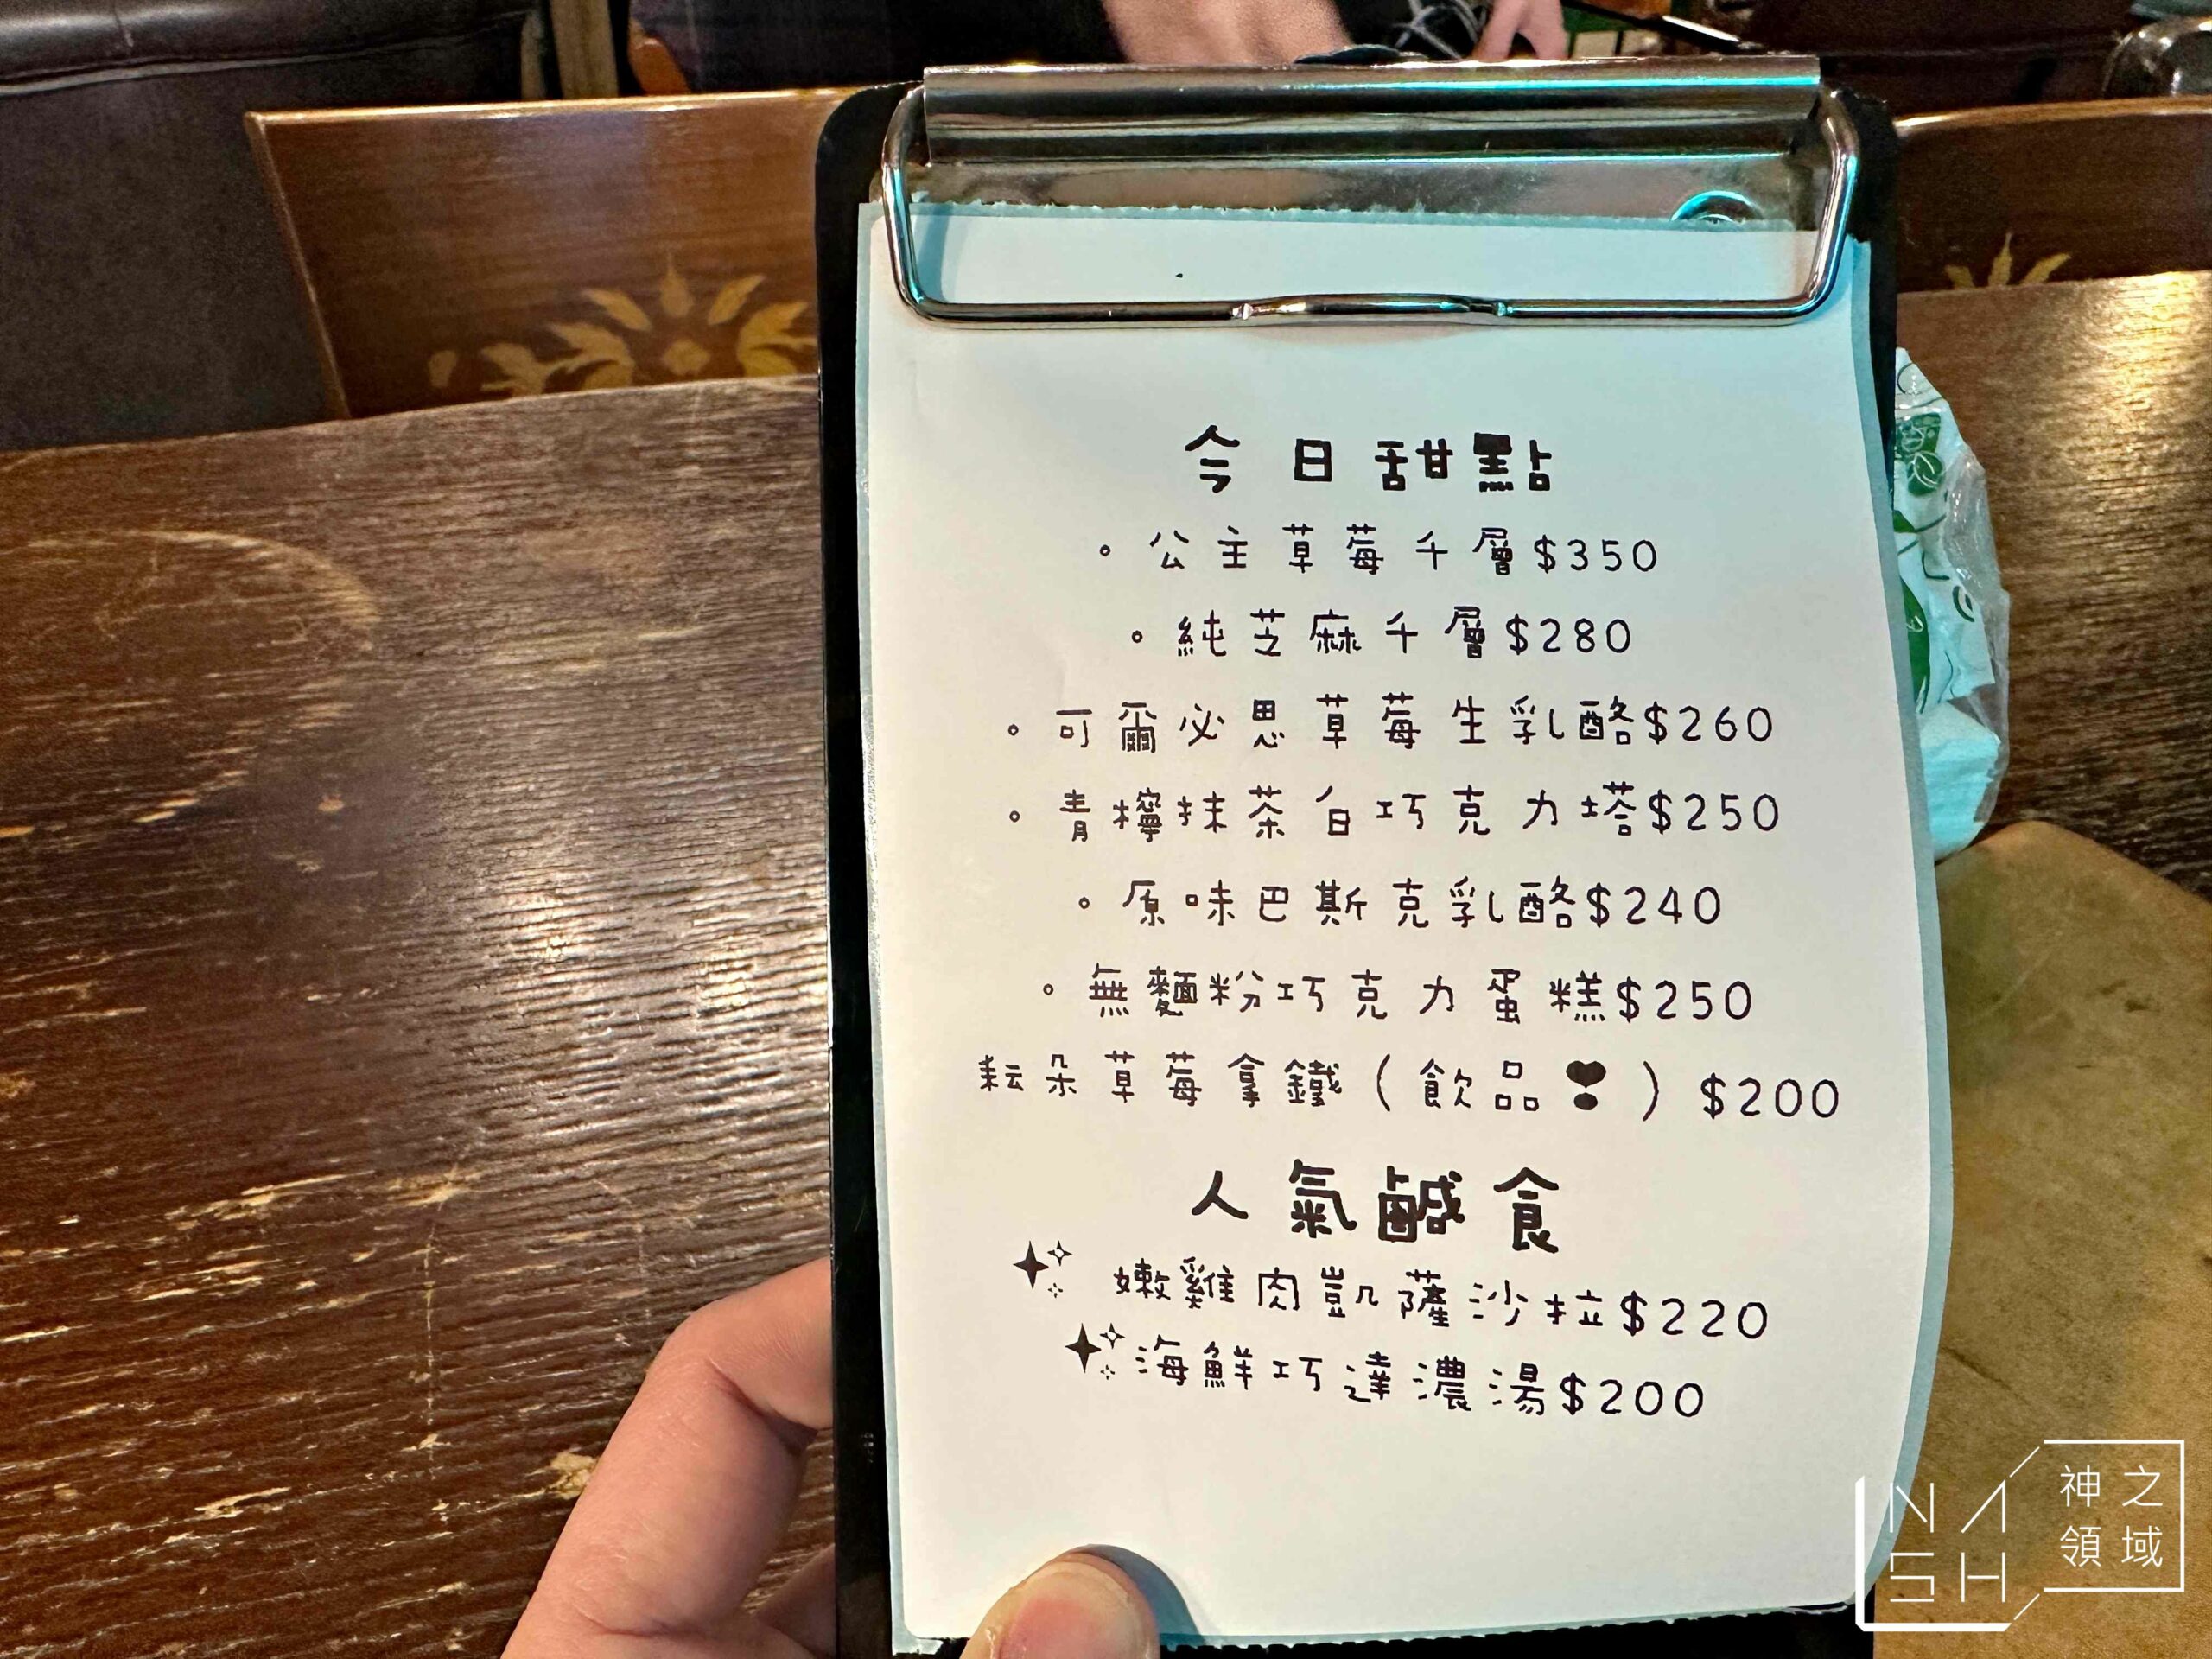 今日甜點
。公主草莓千層$350
。純芝麻千層$280
。可爾必思草莓生乳酪$260
。青檸抹茶白巧克力塔$250
。原味巴斯克乳酪$240
。無麵粉巧克力蛋糕$250
耘朵草莓拿鐵(飲品❣)$200
人氣鹹食
✨嫩雞肉凱薩沙拉$220
✨海鮮巧達濃湯$200
NASH
神之領域